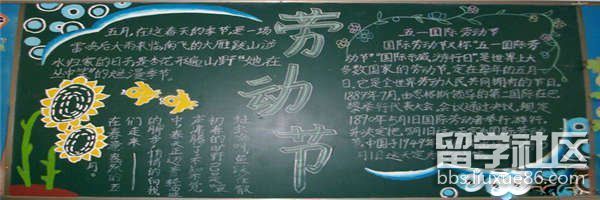 五月,在这春天的季节是一场
雷鸣后大雨来临,南飞的大雁跋山涉
水归家的日子是杏花形遍山野"她在
丛中笑"的烂漫季节。
们走来
在春意盎然的五
的脚步悄悄的向我
劳动节
五一国际劳动节
国际劳动节又称"五一国际劳
动节""国际示威游行日",是世界上大
多数国家的劳动节。定在每年的五月一
日。它是全世界劳动人民共同拥有的节日。
1889年7月,恩格斯领导的第二国际在巴
黎举行代表大会,会议通过决议,规定
1890年5月1日国际劳动者举行游行,
并决定把5月1日
节,中国于1949年
月1日法定为
留学社区
bbs.liuxue86.com